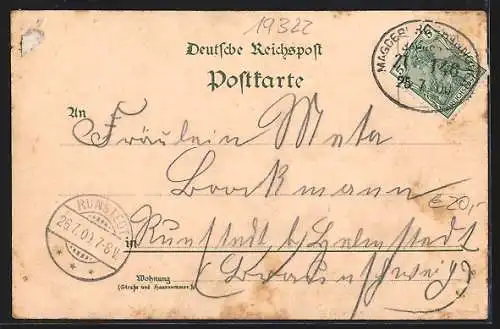 19322
Deutsche Reichspost
Postkarte
An
Fräulein Meta
Brockmann
in Runstedt b/Helmstedt
(Braunschweig)
Wohnung
(Straße und Hausnummer)
MAGDEBURG
ZUG 148
26 7 00
RUNSTEDT
26.7.00. 7-8N.
€ 20,-